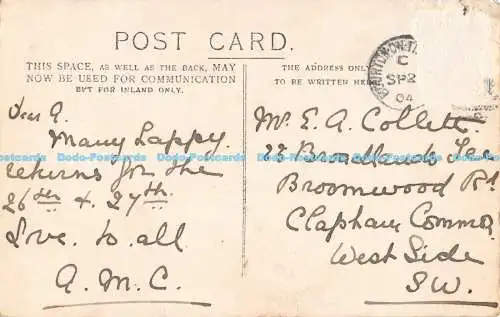 POST CARD.
THIS SPACE, AS WELL AS THE BACK, MAY
NOW BE USED FOR COMMUNICATION
BUT FOR INLAND ONLY.
Dear A.
Many Happy
returns for the
26th & 27th.
Love to all
A. M. C.
THE ADDRESS ONLY
TO BE WRITTEN HERE
C
SP 2
04
Mr. E. A. Collett.
33 Broadlands Ter
Broomwood Rd
Clapham Common
West Side
S.W.
Dodo-Postcards Dodo-Postcards Dodo-Postcards Dodo-Postcards